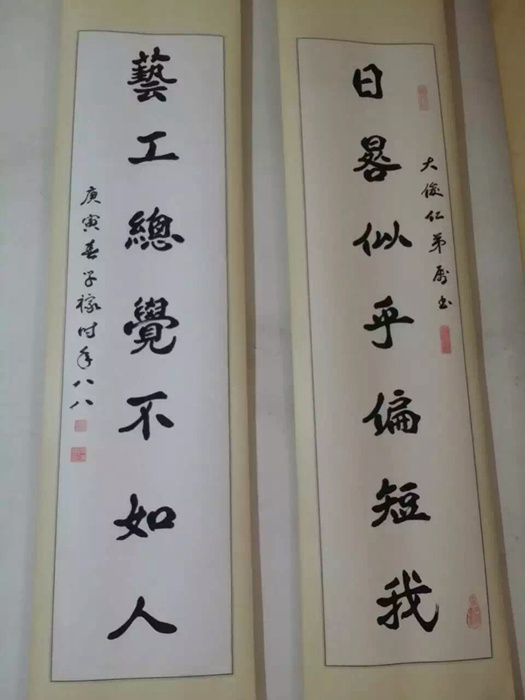 大俊仁弟属书
日晷似乎偏短我
藝工總覺不如人
庚寅春子稼时年八八